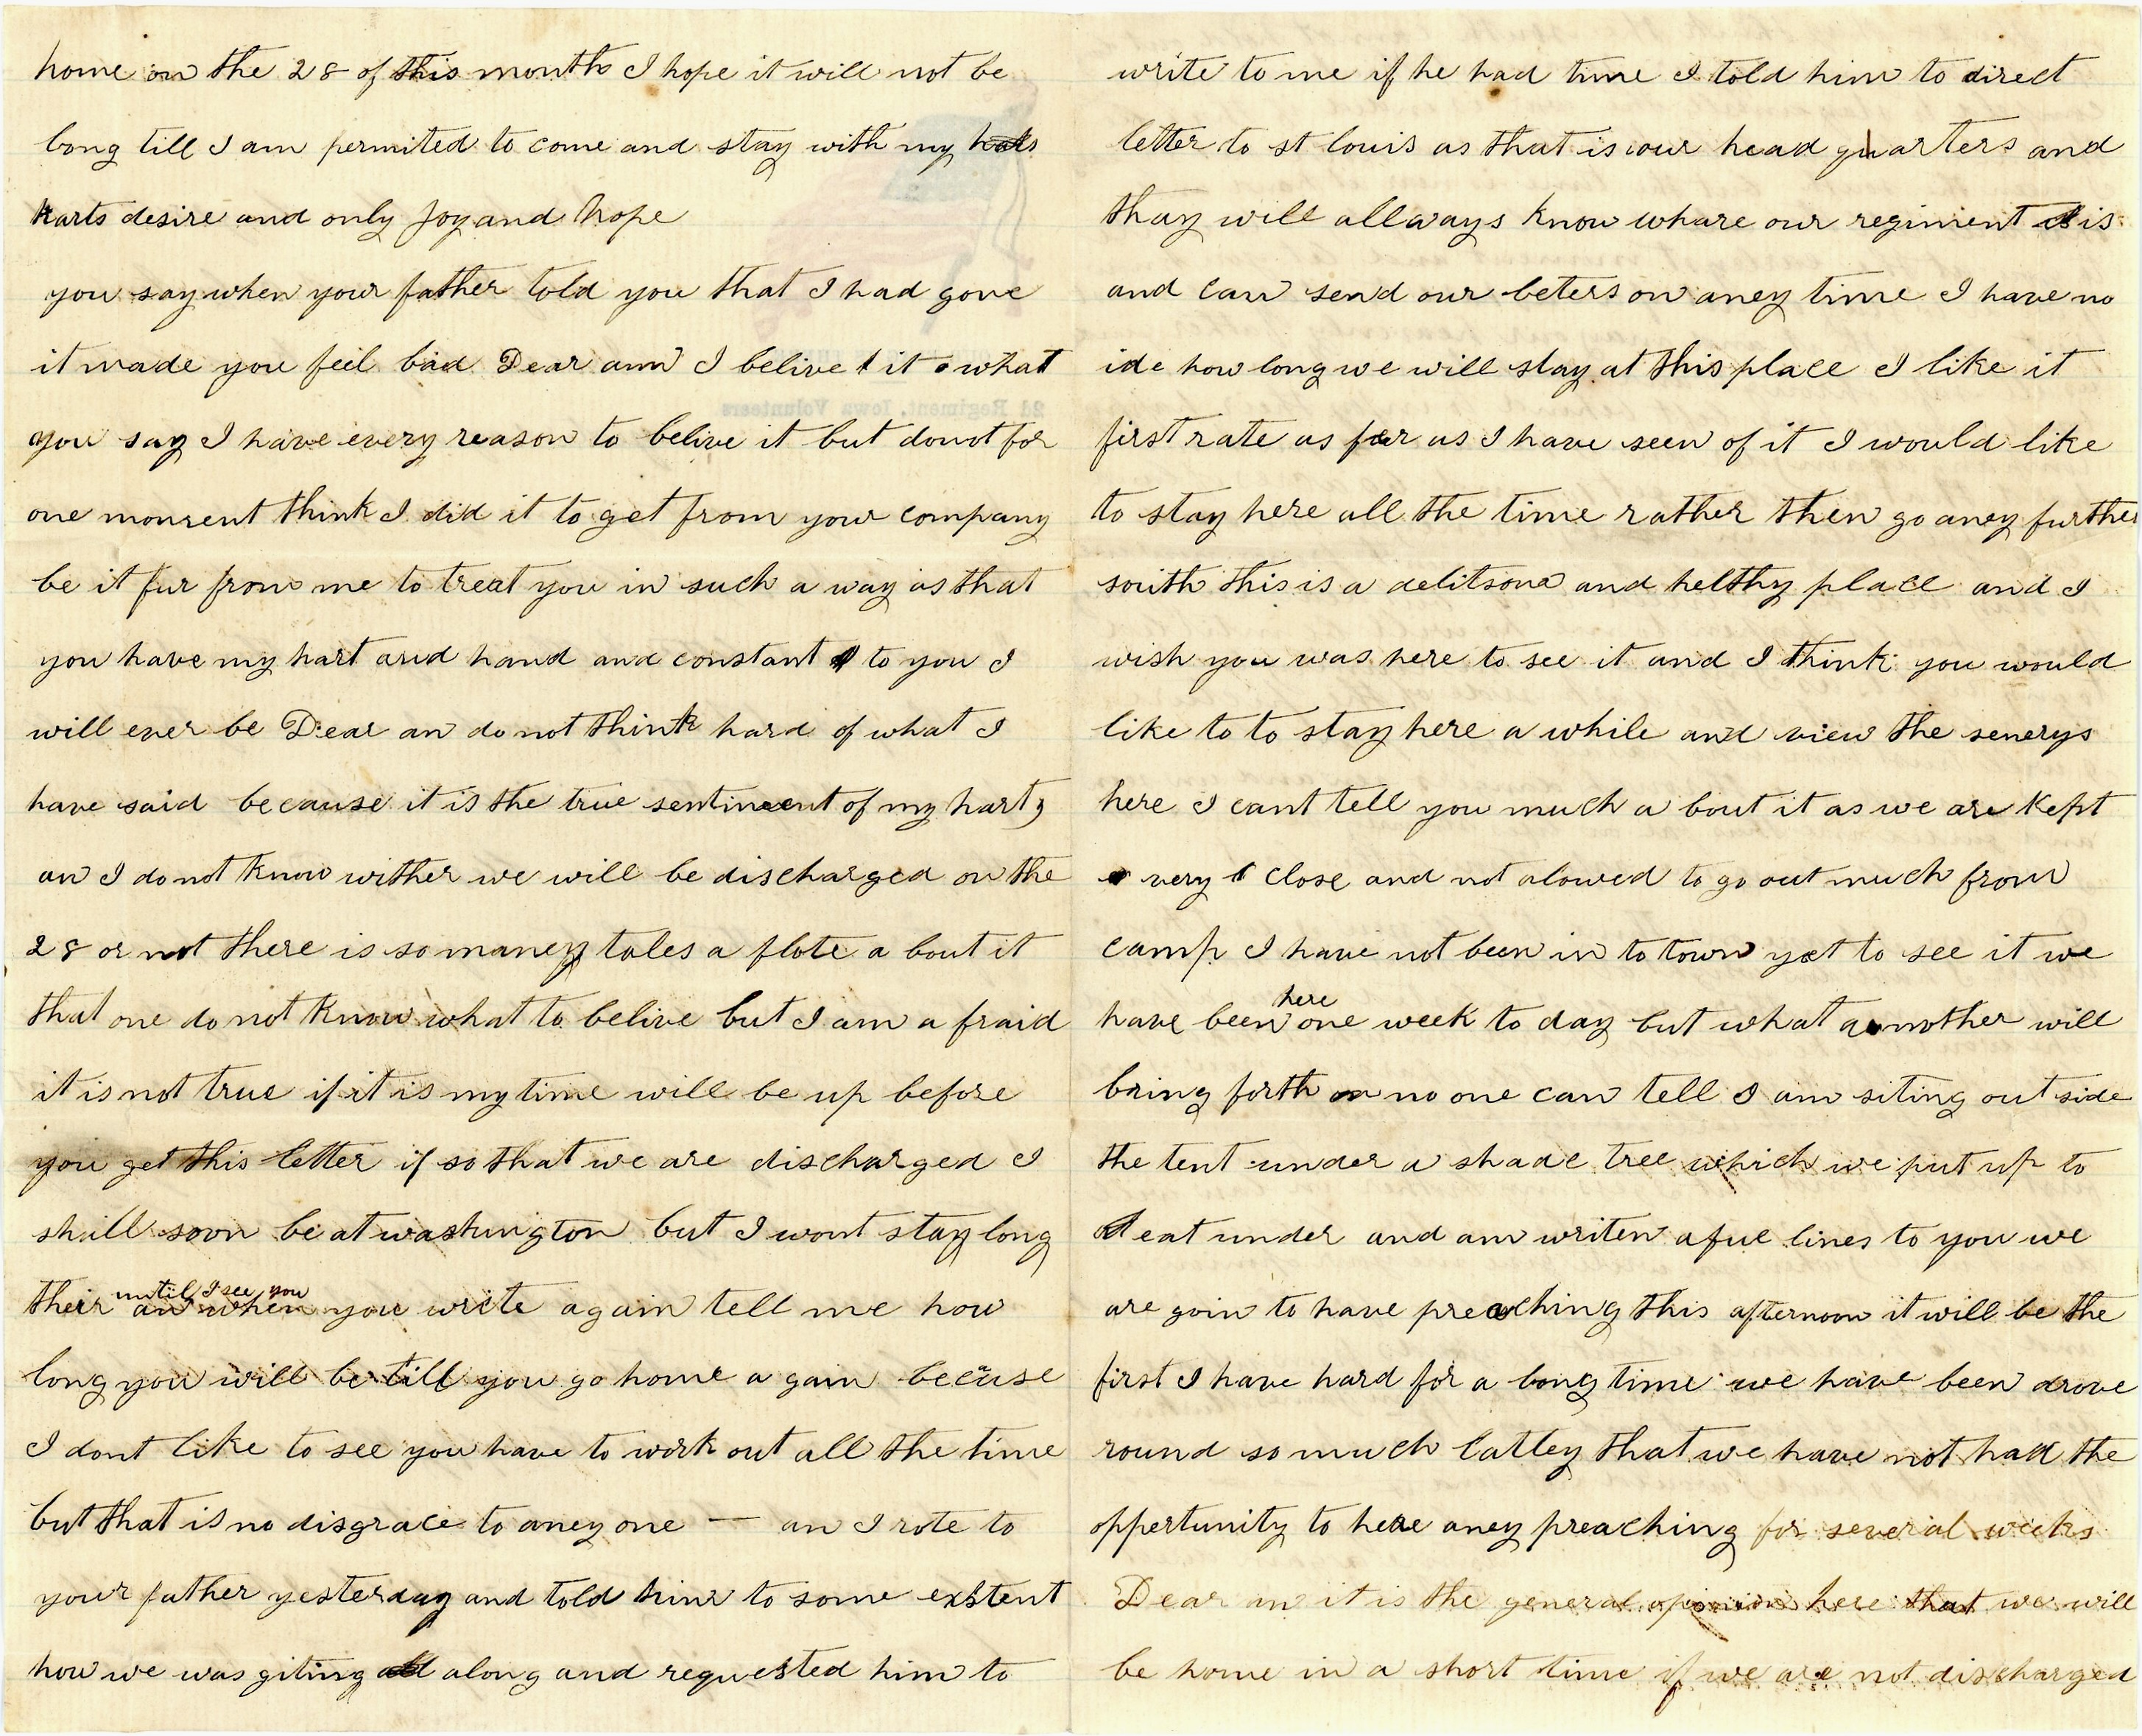 home on the 28 of this month I hope it will not be
long till I am permited to come and stay with my
harts desire and only Joy and hope
you say when your father told you that I had gone
it made you feil bad Dear ann I belive it what
you say I have every reason to belive it but donot for
one monrent think I did it to get from your company
be it fur from me to treat you in such a way as that
you have my hart and hand and constant to you I
will ever be Dear an do not think hard of what I
have said because it is the true sentiment of my hart
an I do not know wither we will be discharged on the
28 or not there is so maney tales a flote a bout it
that one do not know what to belive but I am a fraid
it is not true if it is my time will be up before
you get this letter if so that we are discharged I
shall soon be at washington but I wont stay long
their until I see you an when you write again tell me how
long you will be till you go home a gain because
I dont like to see you have to work out all the time
but that is no disgrace to aney one — an I rote to
your father yesterday and told him to some extent
how we was giting along and requested him to
2d Regiment, Iowa Volunteers
write to me if he had time I told him to direct
letter to st louis as that is our head quarters and
thay will allways know whare our regiment is
and can send our leters on aney time I have no
ide how long we will stay at this place I like it
first rate as far as I have seen of it I would like
to stay here all the time rather then go aney further
south this is a delitsone and helthy place and I
wish you was here to see it and I think you would
like to to stay here a while and view the senerys
here I cant tell you much a bout it as we are kept
very close and not alowed to go out much from
camp I have not been in to town yet to see it we
have been here one week to day but what another will
bring forth no one can tell I am siting out side
the tent under a shade tree which we put up to
eat under and am writen a few lines to you we
are goin to have preaching this afternoon it will be the
first I have hard for a long time we have been drove
round so much latley that we have not had the
oppertunity to heare aney preaching for several weeks
Dear an it is the general opinion here that we will
be home in a short time if we are not discharged